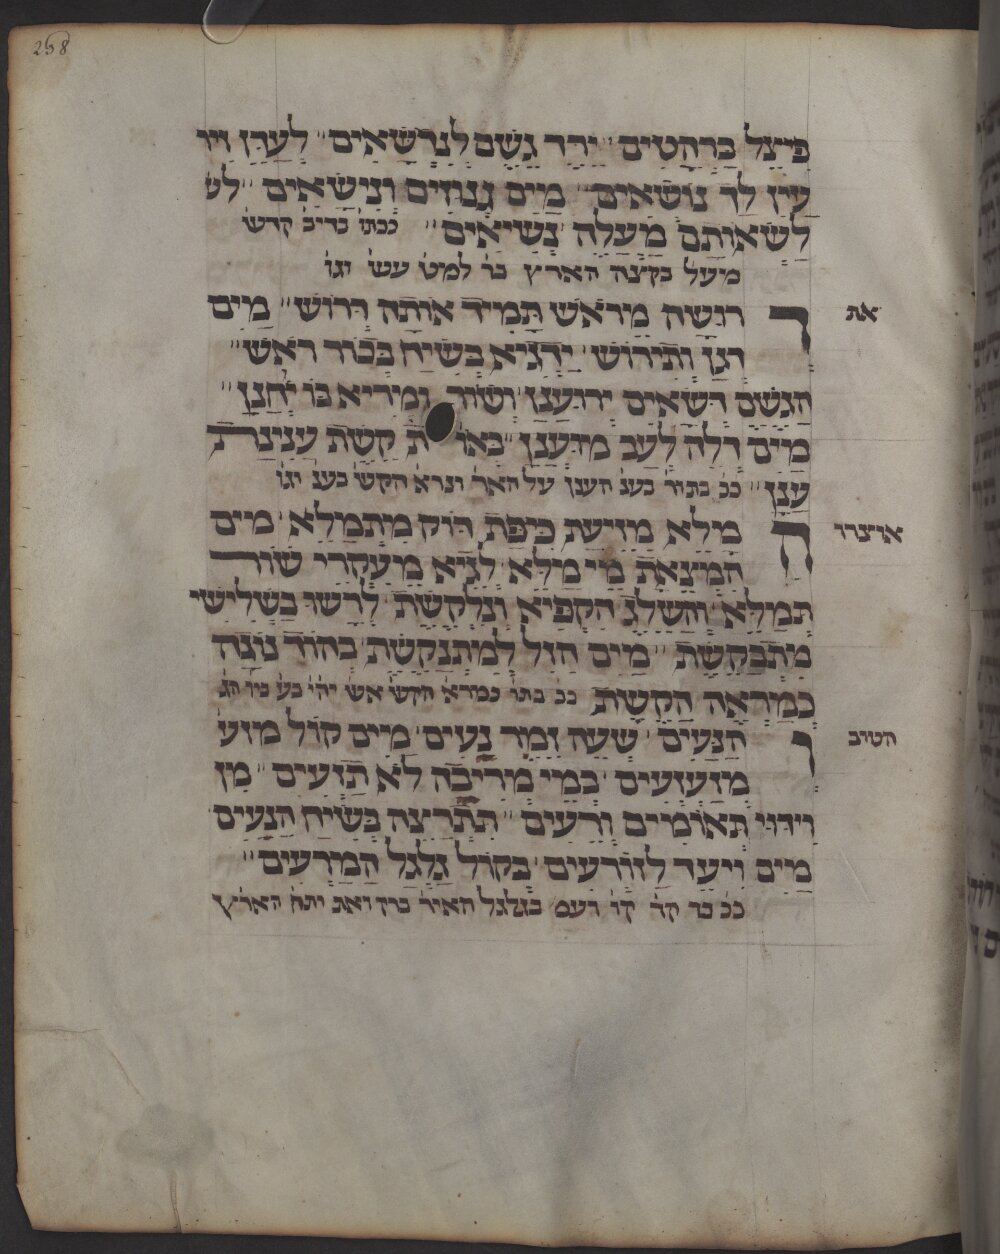 238
פיצל ברהטים ירד גשם לנרשאים לערן ויו
עין לך נושאים מים גנוזים ונישאים לש
לשאותם מעלה נשיאים ככתו בדיב קדשׄ
מעל בקצה הארץ בר למט עשׄ וגו
את
ר רגשה מראש תמיד אותה דרוש מים
דגן ותירוש ירניא בשיח בכוד ראש
הגשם רשאים ידוענן ושור ומריא בו יחנן
מים דלה לעב מדענן באו ת קשת ענינת
ענן ככ בתור בענ הענן על האר ונרא הקש בענ וגו
אוצרו
ה מלא מזיעת כיפת דוק מתמלא מים
המיצאת מי מלא לגיא מעקרי שור
תמלא והשלג הקפיא ונלקשת לרשו בשלישי
מתבקשת מים הזל למתנקשת בהוד נוגה
כמראה הקשת ככ כתו כמרא הקש אש יהי בע ביו הג
הטיב
ו הנעים שעה זמר נעים מים קול מוע
מזעזעים במי מריבה לא תזעים מן
וידוי תאומים ורעים תתרצה בשיח הנעים
מים ויעד לזורעים בקול גלגל המרעים
ככ בד קד קו רעמ בגלגל האיר ברק ואג ותח הארץ